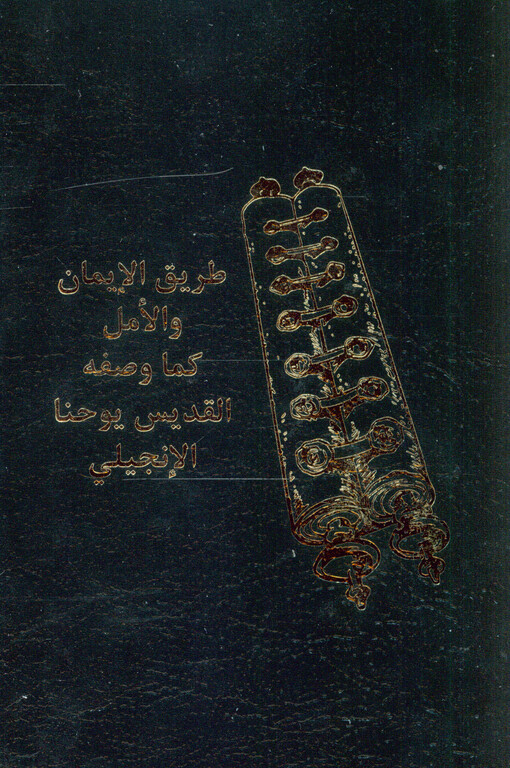 طريق الإيمان
والأمل
كما وصفه
القديس يوحنا
الإنجيلي